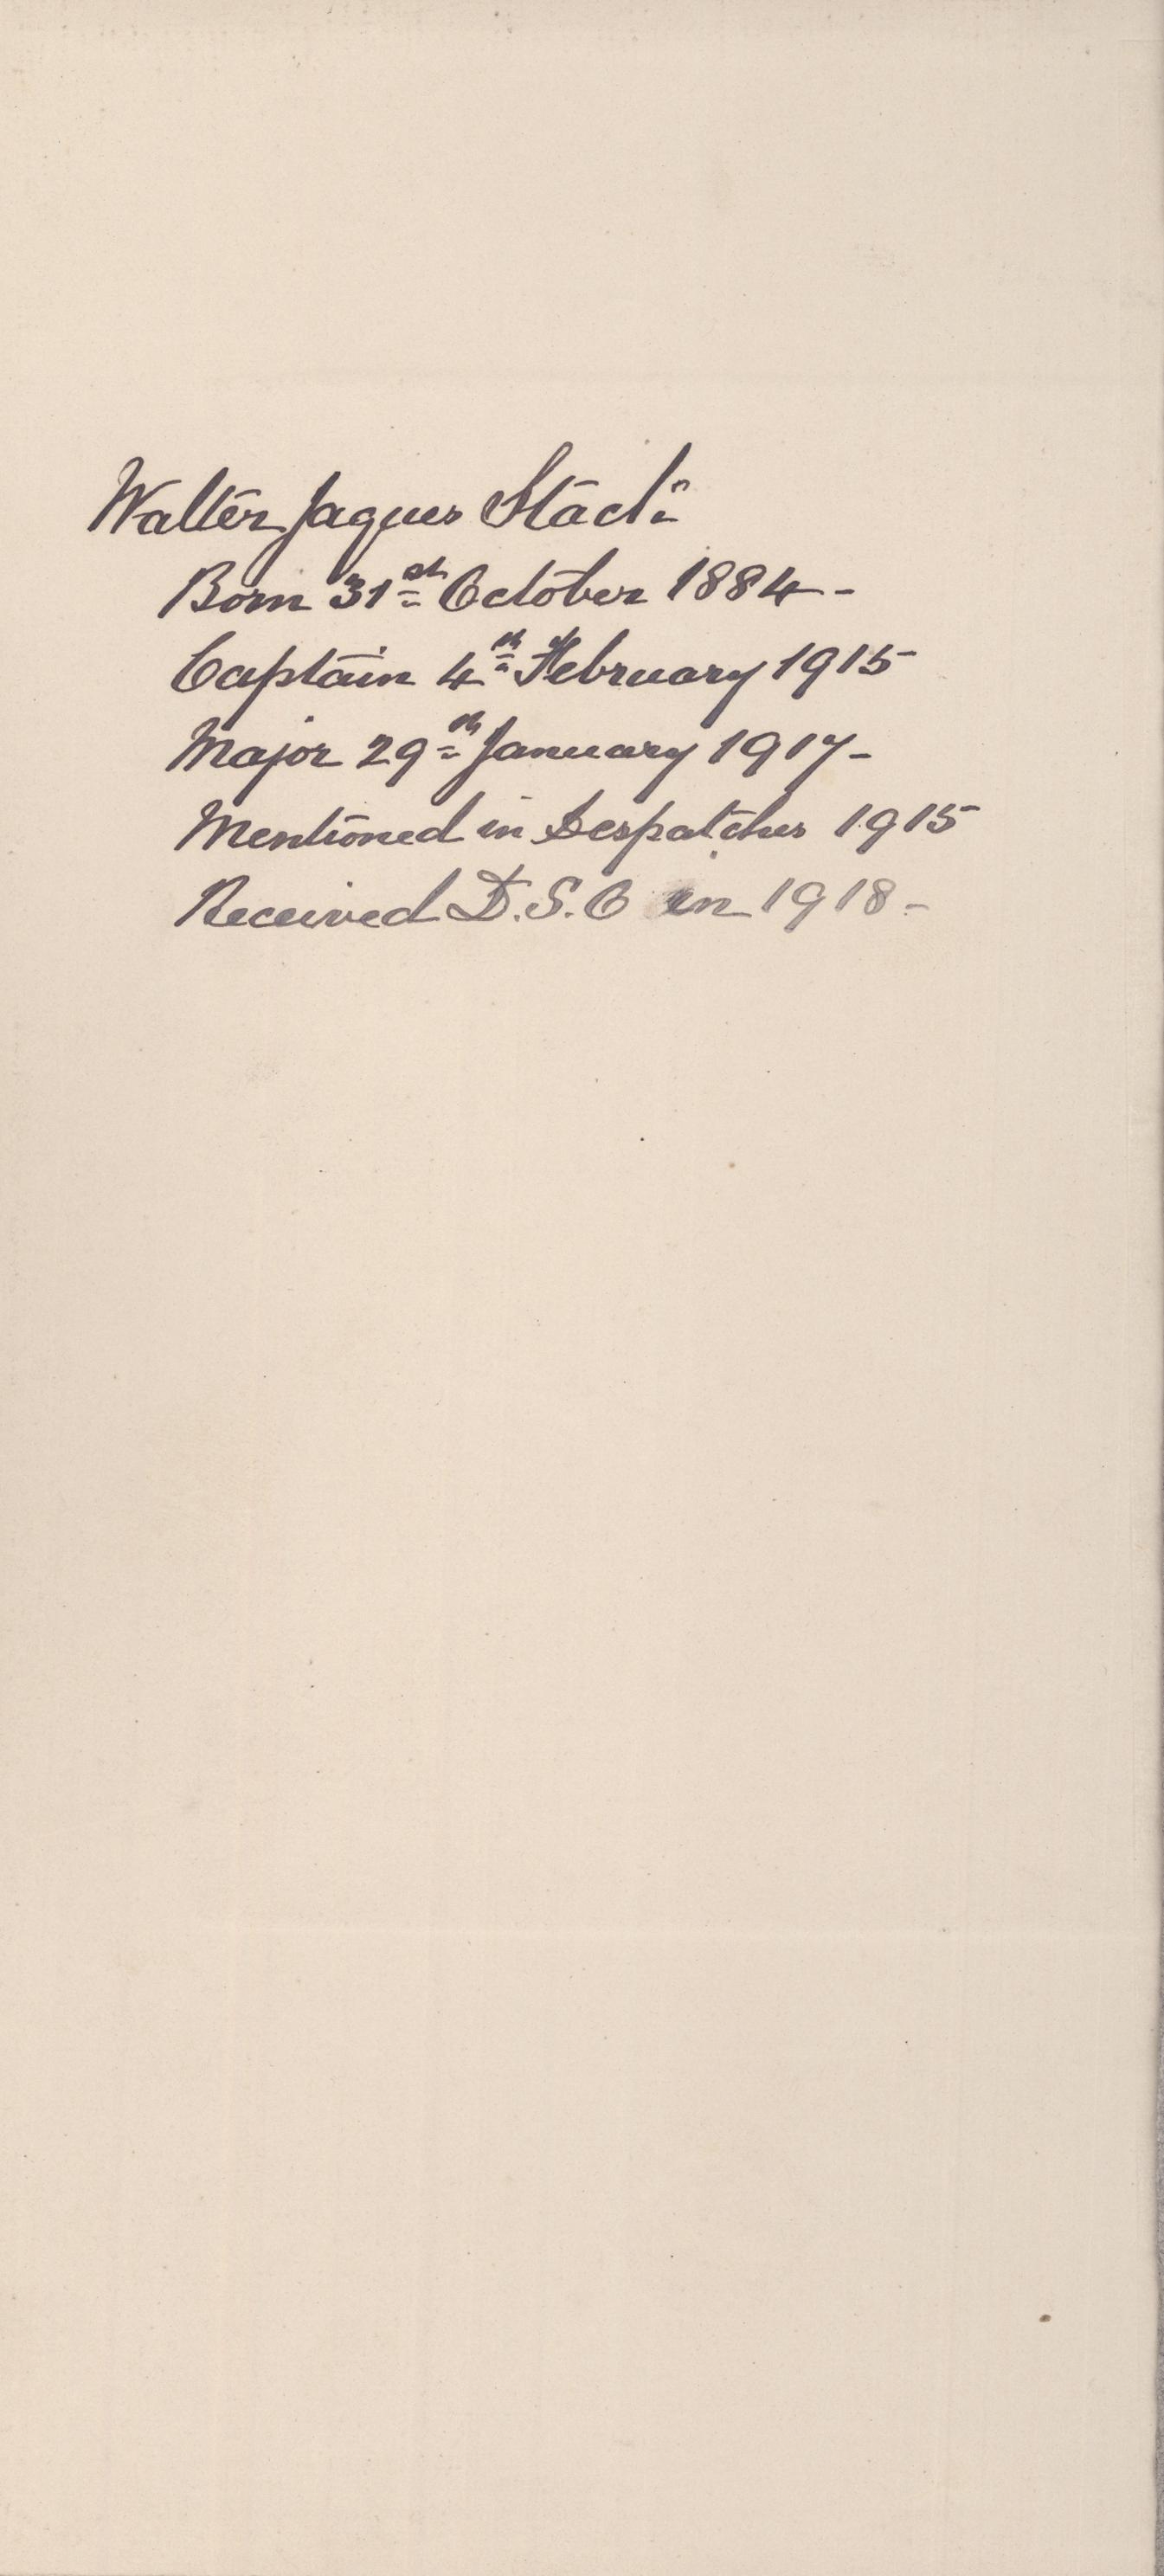 Walter Jaques Stack
Born 31st October 1884 -
Captain 4th February 1915
Major 29th January 1917 -
Mentioned in Despatches 1915
Received D.S.O in 1918 -